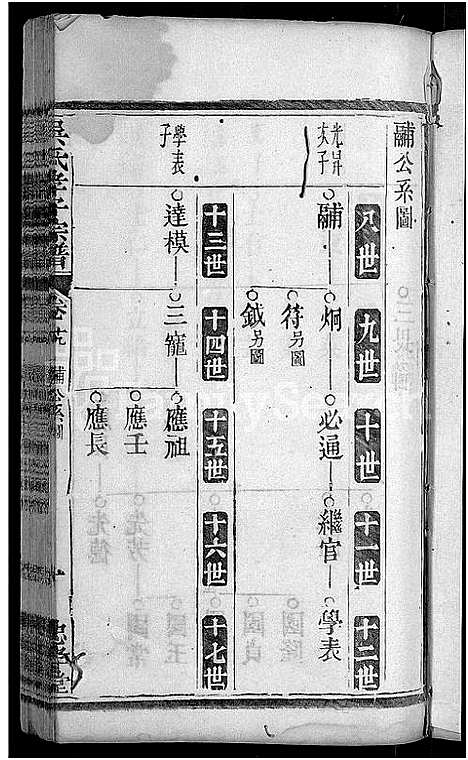 黼公系圖
八世
九世
十世
十一世
十二世
光昇
次子
黼
炯
必通
繼官
學表
苻另圖
鉞另圖
十三世
十四世
十五世
十六世
十七世
學表
子
達模
三寵
應祖
應壬
應長
吳氏孝子宗譜
黼公系圖